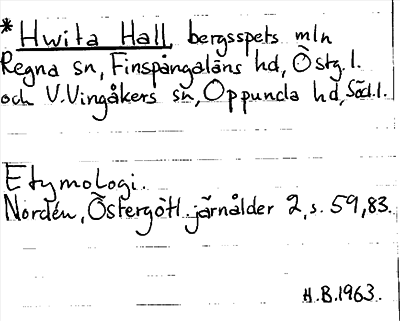 *Hwita Hall, bergsspets mln
Regna sn, Finspångaläns hd, Östg.l.
och V.Vingåkers sn, Oppunda hd, Söd.l.
Etymologi.
Nordén, Östergötl. järnålder 2, s. 59, 83.
H.B.1963.